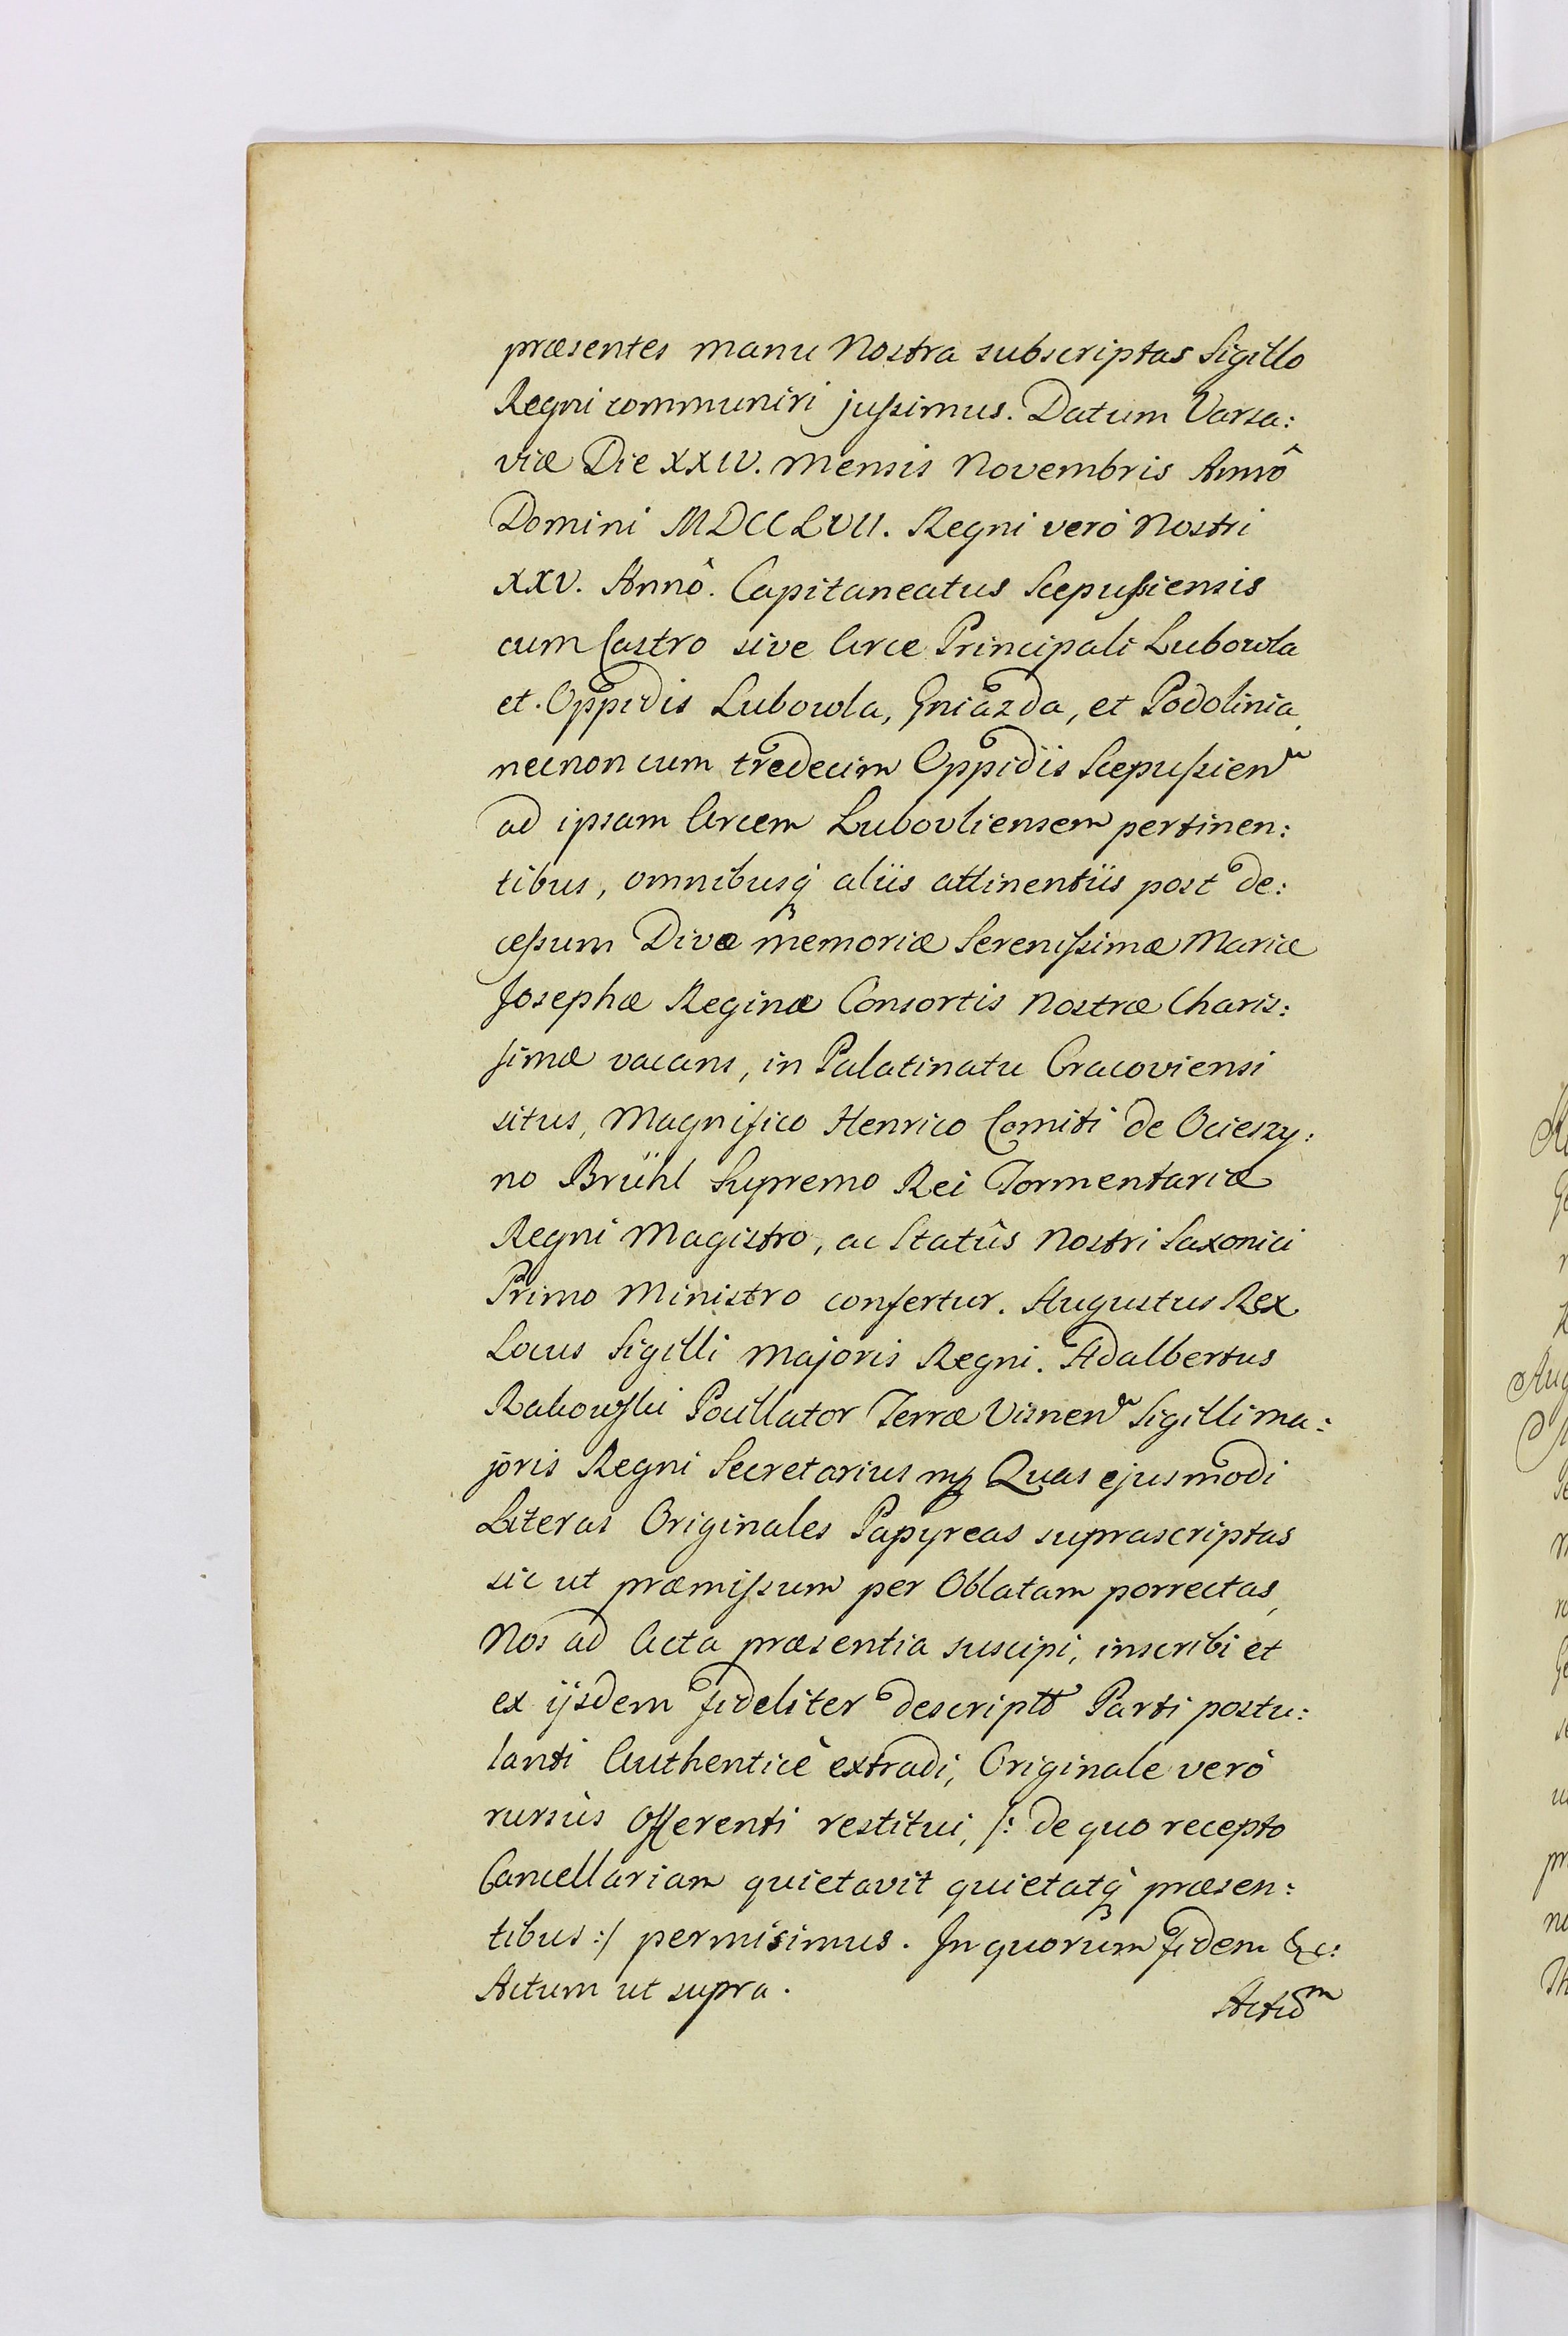 præsentes manu Nostra subscriptas Sigillo
Regni communiri jussimus. Datum Varsa:
viæ Die XXIV. Mensis Novembris Annô
Domini MDCCLVII. Regni verò Nostri
XXV. Annô. Capitaneatus Scepusiensis
cum Castro sive Arce Principali Lubowla
et Oppidis Lubowla, Gniazda, et Podolinia,
necnon cum tredecim Oppidis Scepusien
ad ipsam Arcem Lubovliensem pertinen:
tibus, omnibusq́ʒ aliis attinentiis post de:
cessum Divæ memoriæ Serenissimæ Mariæ
Josephæ Reginæ Consortis Nostræ Charis:
simæ vacans, in Palatinatu Cracoviensi
situs, Magnifico Henrico Comiti de Ocieszy:
no Brühl Supremo Rei Tormentariæ
Regni Magistro, ac Statûs Nostri Saxonici
Primo Ministro confertur. Augustus Rex
Locus Sigilli Majoris Regni. Adalbertus
Rakowski Pocillator Terræ Visnen Sigilli ma:
joris Regni Secretarius mp Quas ejusmodi
Literas Originales Papyreas suprascriptas
sic ut præmissum per Oblatam porrectas,
Nos ad Acta præsentia suscipi, inscribi et
ex ijsdem fideliter descriptõ Parti postu:
lanti Authenticè extradi, Originale verò
rursùs Offerenti restitui, /: de quo recepto
Cancellariam quietavit quietatq́ʒ præsen:
tibus :/ permisimus. In quorum fidem &c:
Actum ut supra.